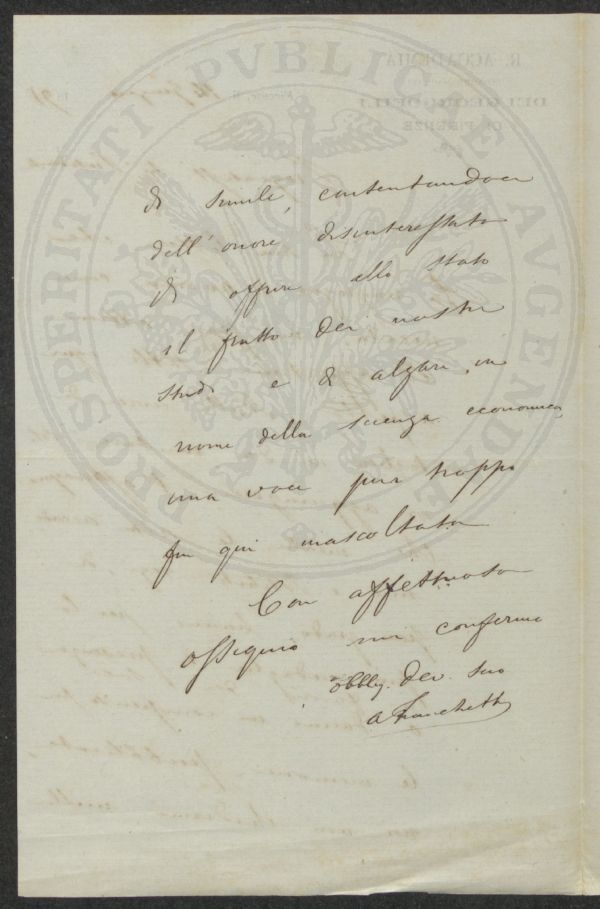 PROSPERITATI PVBLICAE AVGENDAE
R. ACCADEMIA
DEI GEORGOFILI
DI FIRENZE
di simile, contentandoci
dell'onore disinteressato
di offrire allo Stato
il frutto dei nostri
studi e di alzare, in
nome della scienza economica,
una voce pur troppo
fin qui inascoltata
Con affettuoso
ossequio mi confermo
obblig. dev. suo
a Franchetti